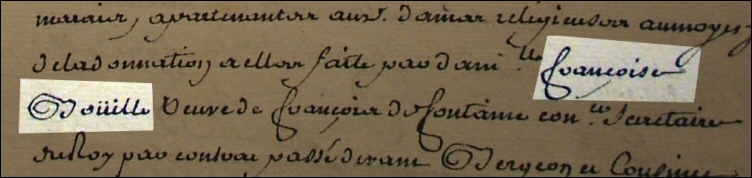 marais, apartenant aux d. dames religieuses au moyen
de la donnation a elles faite par dam.lle Françoise
Doüille Veuve de François de Fontaine con.er Secretaire
du Roy par contrat passé devant Bergeon et Cousinet